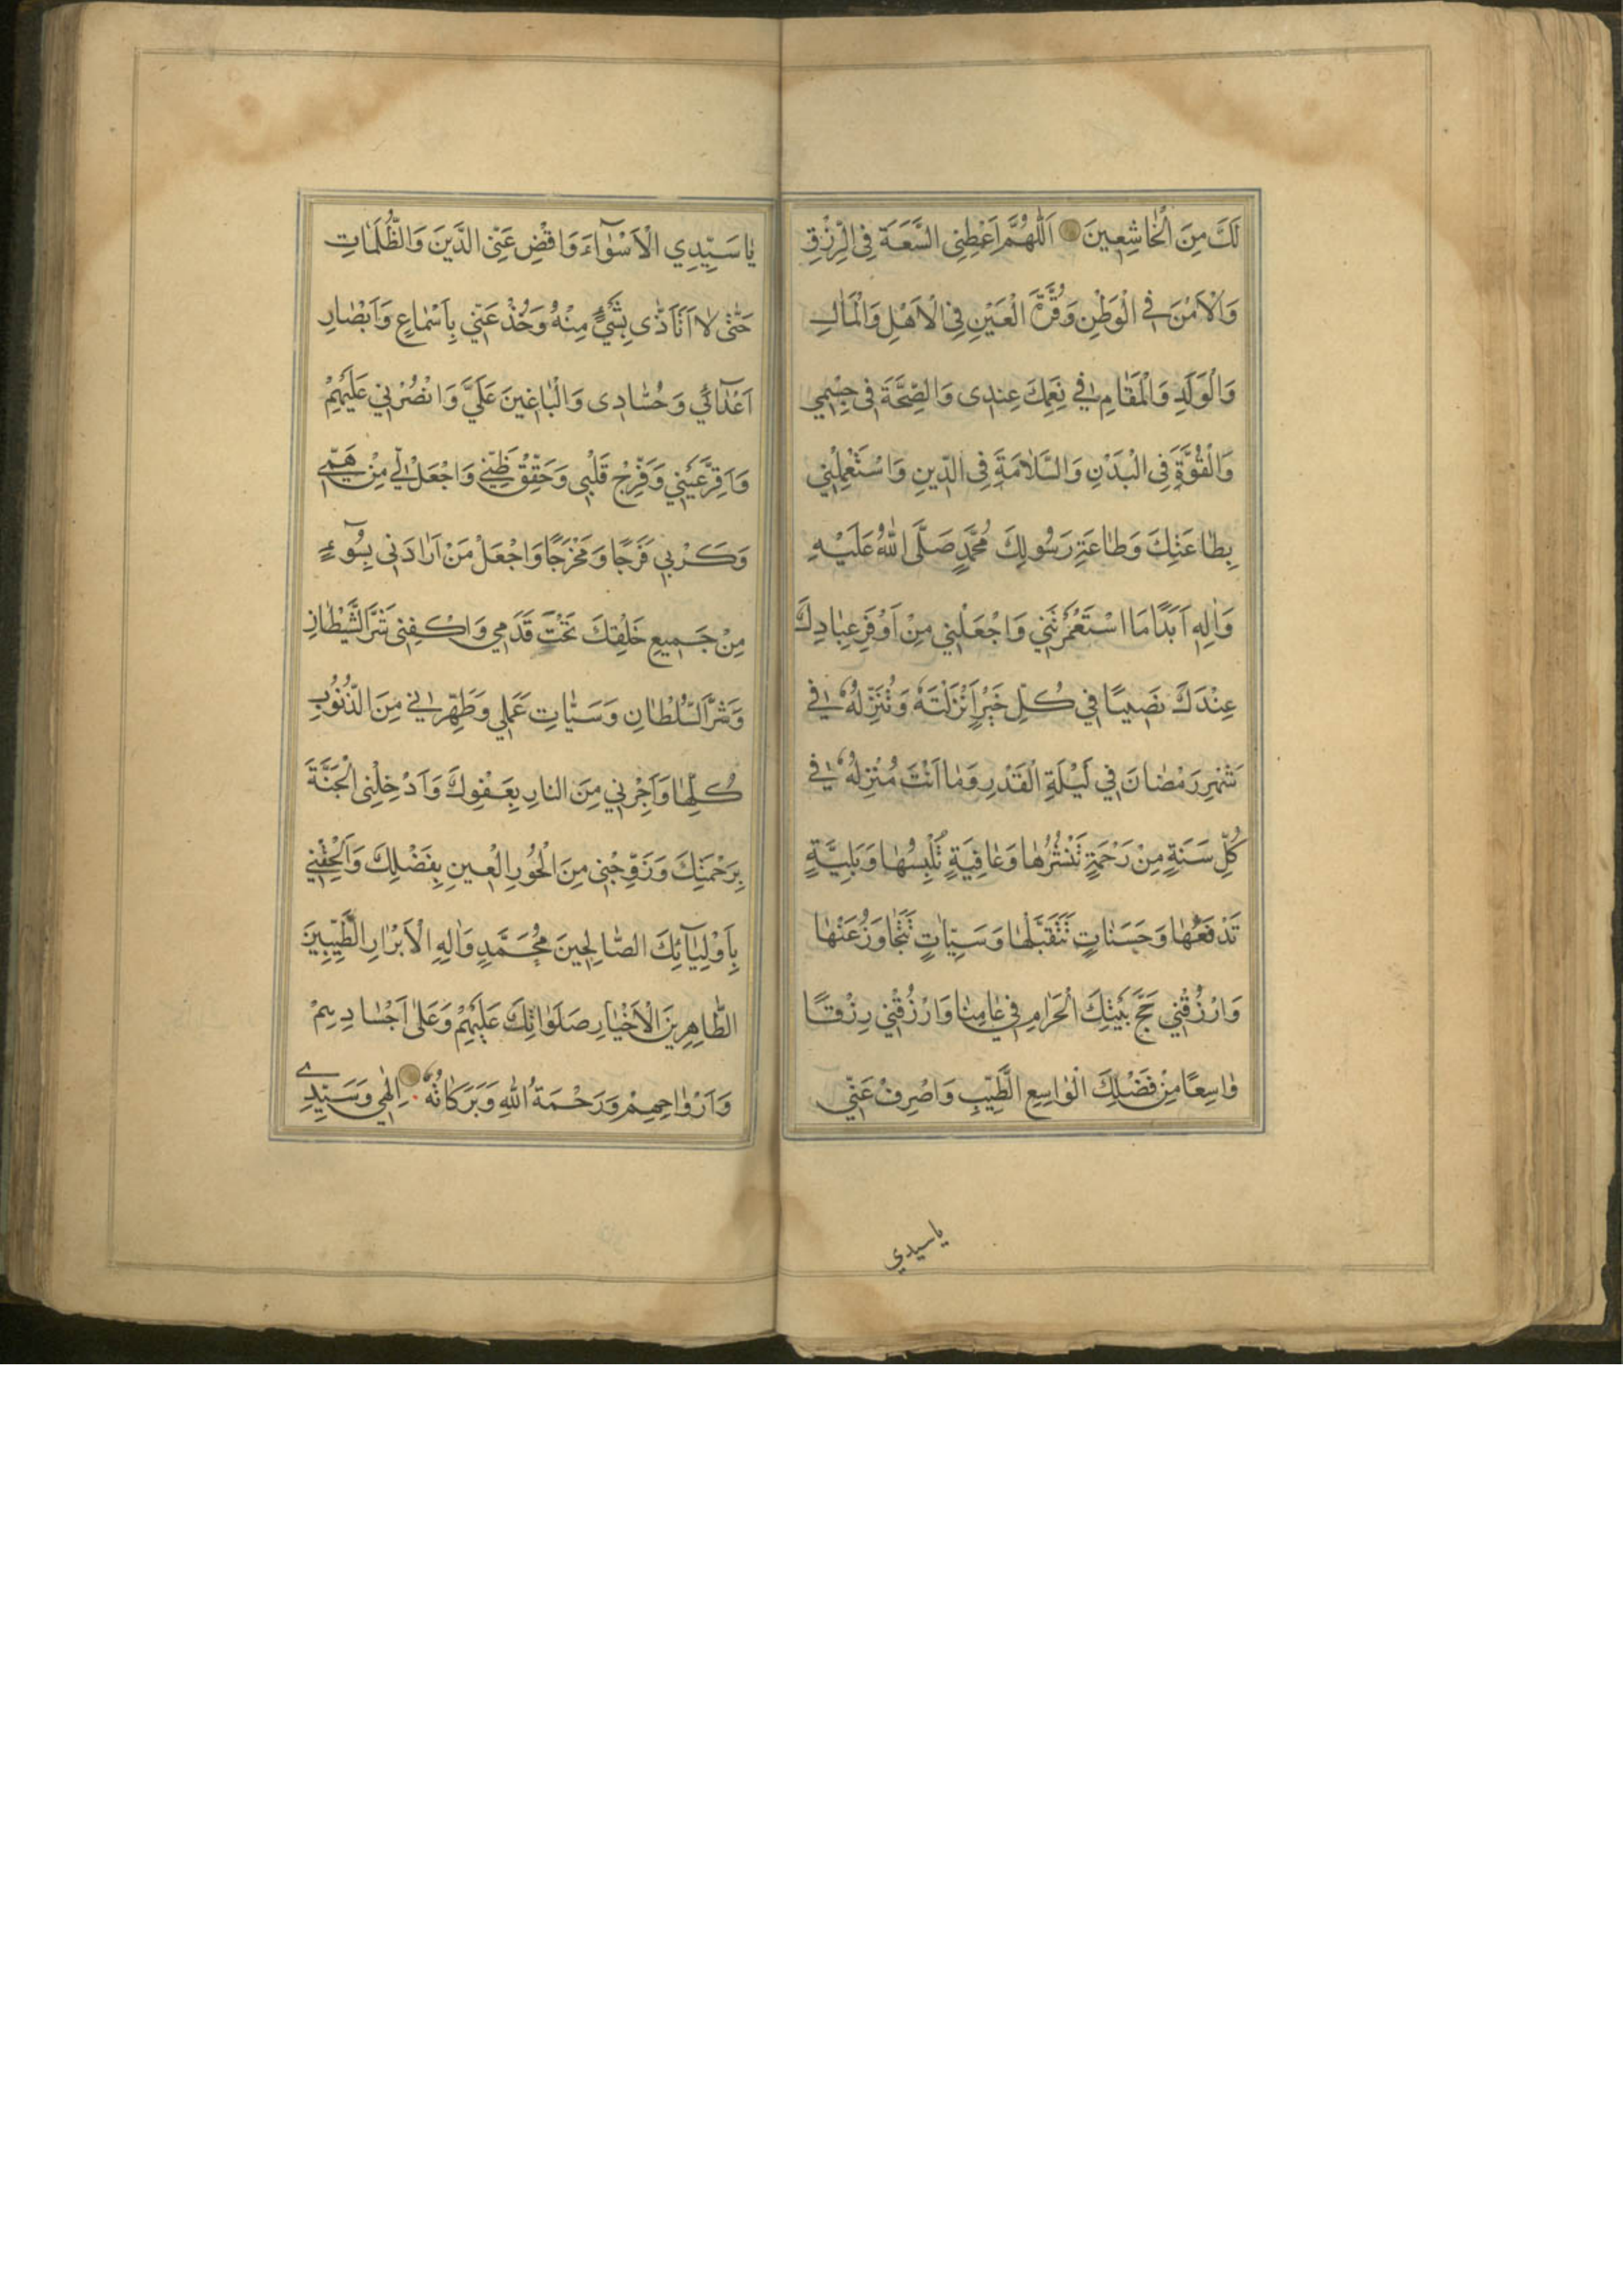 لَكَ مِنَ الْخٰاشِعِينَ اَللّٰهُمَّ اَعْطِنِى السَّعَةَ فِى الرِّزْقِ
وَالْاَمْنَ فِي الْوَطَنِ وَقُرَّةَ الْعَيْنِ فِى الْاَهْلِ وَالْمٰالِ
وَالْوَلَدِ وَالْمَقٰامِ فِي نِعَمِكَ عِنْدِى وَالصِّحَّةَ فِى جِسْمِي
وَالْقُوَّةَ فِى الْبَدَنِ وَالسَّلٰامَةَ فِى الدِّينِ وَاسْتَعْمِلْنِي
بِطٰاعَتِكَ وَطٰاعَةِ رَسُولِكَ مُحَمَّدٍ صَلَّى اللّٰهُ عَلَيْهِ
وَاٰلِهِ اَبَدًا مَا اسْتَعْمَرْتَنِي وَاجْعَلْنِي مِنْ اَوْفَرِ عِبٰادِكَ
عِنْدَكَ نَصِيبًا فِي كُلِّ خَيْرٍ اَنْزَلْتَهُ وَتُنَزِّلُهُ فِي
شَهْرِ رَمْضٰانَ فِي لَيْلَةِ الْقَدْرِ وَمٰا اَنْتَ مُنْزِلُهُ فِي
كُلِّ سَنَةٍ مِنْ رَحْمَةٍ تَنْشُرُهٰا وَعٰافِيَةٍ تُلْبِسُهٰا وَبَلِيَّةٍ
تَدْفَعُهٰا وَحَسَنٰاتٍ تَتَقَبَّلُهٰا وَسَيِّئٰاتٍ تَتَجٰاوَزُ عَنْهٰا
وَارْزُقْنِي حَجَّ بَيْتِكَ الْحَرٰامِ فِي عٰامِنٰا وَارْزُقْنِي رِزْقًا
وٰاسِعًا مِنْ فَضْلِكَ الْوٰاسِعِ الطَّيِّبِ وَاصْرِفْ عَنِّي
ياسيدي
يٰا سَيِّدِي الْاَسْوٰآءَ وَاقْضِ عَنِّى الدَّيْنَ وَالظُّلَمٰاتِ
حَتّٰى لٰا اَتَاَذّٰى بِشَيْءٍ مِنْهُ وَخُذْ عَنِّي بِاَسْمٰاعِ وَاَبْصٰارِ
اَعْدٰائِي وَحُسّٰادِى وَالْبٰاغِينَ عَلَيَّ وَانْصُرْنِي عَلَيْهِمْ
وَاَقِرَّ عَيْنِي وَفَرِّحْ قَلْبِى وَحَقِّقْ ظَنِّي وَاجْعَلْ لِي مِنْ هَمِّي
وَكَرْبِي فَرَجًا وَمَخْرَجًا وَاجْعَلْ مَنْ اَرٰادَنِي بِسُوٓءٍ
مِنْ جَمِيعِ خَلْقِكَ تَحْتَ قَدَمِي وَاكْفِنِى شَرَّ الشَّيْطٰانِ
وَشَرَّ السُّلْطٰانِ وَسَيِّئٰاتِ عَمَلِي وَطَهِّرْنِي مِنَ الذُّنُوبِ
كُلِّهٰا وَاَجِرْنِي مِنَ النارِ بِعَفْوِكَ وَاَدْخِلْنِى الْجَنَّةَ
بِرَحْمَتِكَ وَزَوِّجْنِى مِنَ الْحُورِ الْعِينِ بِفَضْلِكَ وَاَلْحِقْنِي
بِاَوْلِيٰآئِكَ الصّٰالِحِينَ مُحَمَّدٍ وَاٰلِهِ الْاَبْرٰارِ الطَّيِّبِينَ
الطّٰاهِرِينَ الْاَخْيٰارِ صَلَوٰاتُكَ عَلَيْهِمْ وَعَلىٰ اَجْسٰادِهِمْ
وَاَرْوٰاحِهِمْ وَرَحْمَةُ اللّٰهِ وَبَرَكٰاتُهُ اِلٰهِي وَسَيِّدِي